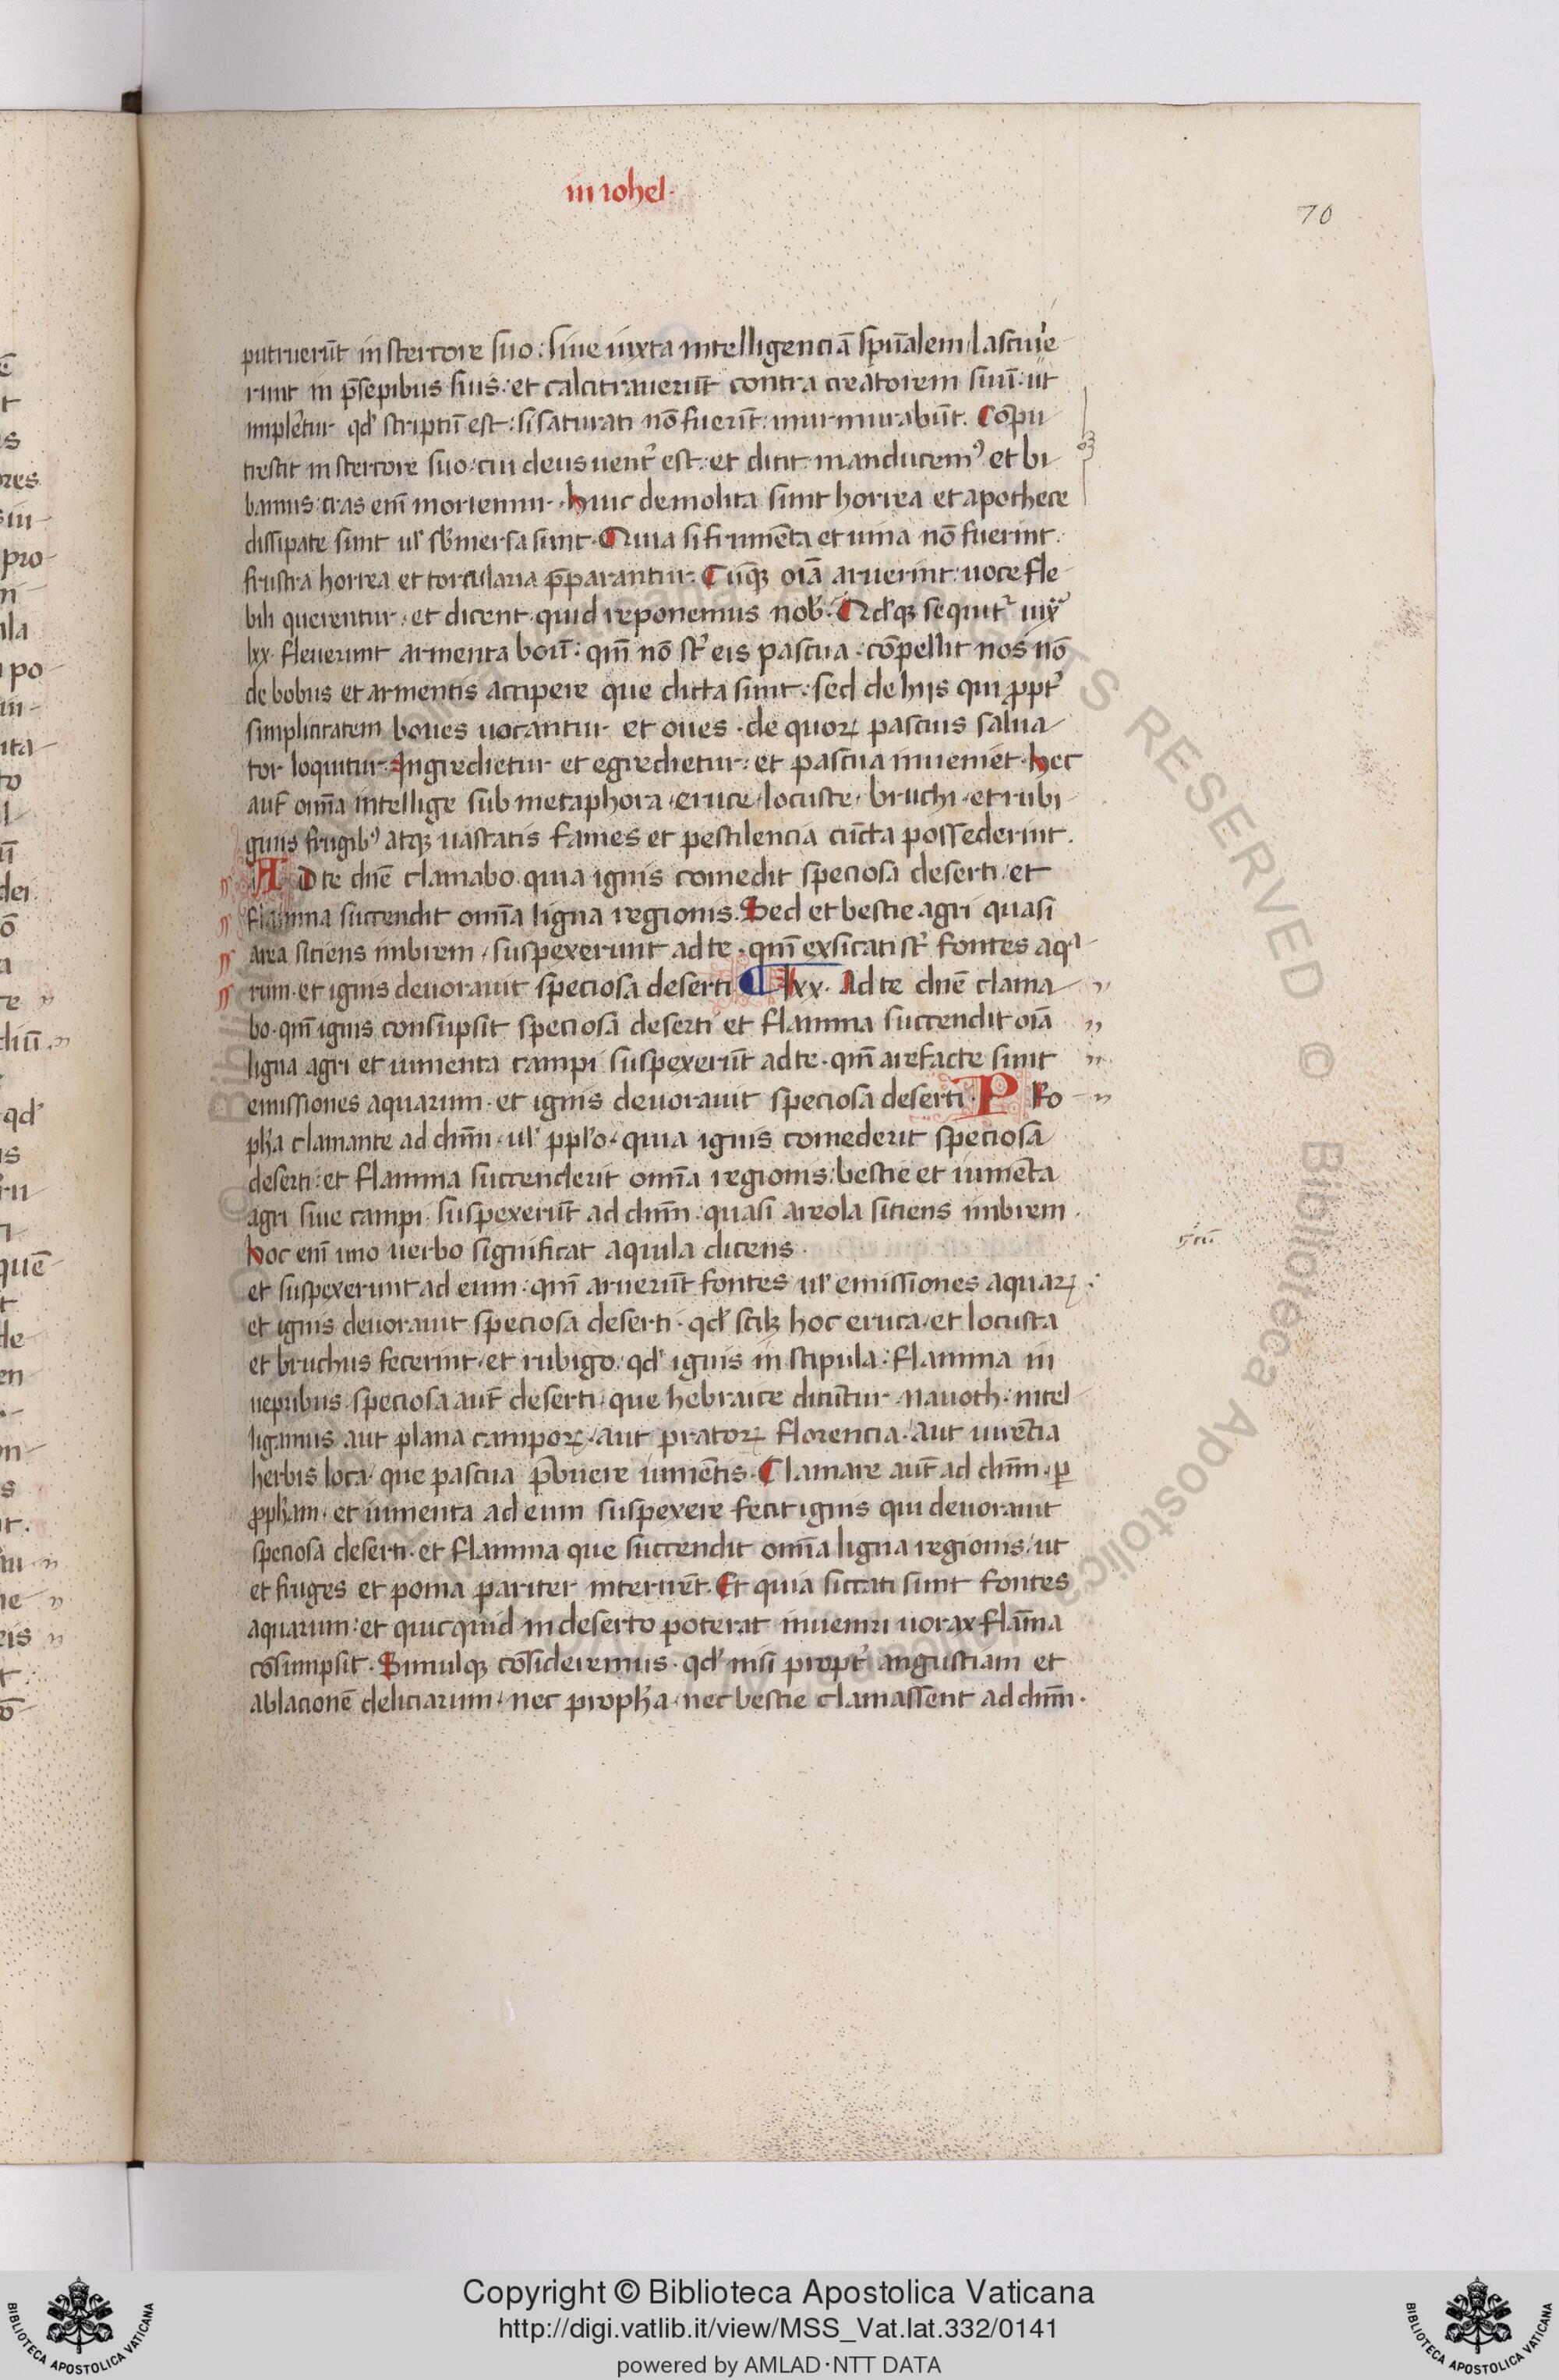 in iohel·
70
putruerūt in stercore suo: siue iuxta intelligenciā spūalem lasciuie
runt in p̄sepibus suis: et calcitrauerūt contra creatorem suū: ut
impleretur qd' scriptū est: si saturati nō fuerūt: murmurabūt. Cōpu
trescit in stercore suo: cui deus uent᷒ est: et dicit: manducem᷒ et bi
bamus: cras eni᷒ moriemur· huic demolita sunt horrea et apothece
dissipate sunt ul' sb'mersa sunt· Quia si frumēta et uina nō fuerint·
frustra horrea et torcularia p̄parantur. Cūq; oīa aruerint: uoce fle
bili querentur: et dicent· quid reponemus nob'. Qd'q; sequit᷒ iux᷒
lxx· fleuerunt armenta boū: qm̄ nō st᷒ eis pascua· cōpellit nos nō
de bobus et armentis accipere que dicta sunt: sed de hijs qui ꝓpt᷒
simplicitatem boues uocantur et oues· de quoꝝ pascuis salua
tor loquitur· Ingredietur et egredietur: et pascua inueniet· hec
aut̄ omīa intellige sub metaphora· eruce· locuste· bruchi· et rubi
ginis frugib᷒ atq; uastatis fames et pestilencia cūcta possederint.
AD te dnē clamabo· quia ignis comedit speciosa deserti: et
flamma succendit omīa ligna regionis. Sed et bestie agri quasi
area sitiens imbrem· suspexerunt ad te· qm̄ exsicati st᷒ fontes aqᵃ
rum· et ignis deuorauit speciosa deserti lxx. Ad te dnē clama
bo· qm̄ ignis consūpsit speciosa deserti et flamma succendit oīa
ligna agri et iumenta campi suspexerūt ad te· qm̄ arefacte sunt
emissiones aquarum· et ignis deuorauit speciosa deserti· PRo
ph̄a clamante ad dnm̄· ul' ppl'o· quia ignis comederit speciosa
deserti: et flamma succenderit omīa regionis: bestie et iumēta
agri siue campi· suspexerūt ad dnm̄· quasi areola sitiens imbrem·
hoc eni᷒ uno uerbo significat aquila dicens·
et suspexerunt ad eum· qm̄ aruerūt fontes ul' emissiones aquaꝝ·:
et ignis deuorauit speciosa deserti· qd' scil; hoc eruca· et locusta
et bruchus fecerint· et rubigo· qd' ignis in stipula: flamma in
uepribus· speciosa aut̄ deserti· que hebraice dicūtur· nauoth· intel
ligamus aut plana campoꝝ· aut pratoꝝ florencia· aut uirēcia
herbis loca· que pascua p̄buere iumētis· Clamare aut̄ ad dnm̄· ꝑ
ꝓph̄am· et iumenta ad eum suspexere fecit ignis qui deuorauit
speciosa deserti· et flamma que succendit omīa ligna regionis: ut
et fruges et poma pariter interirēt· Et quia siccati sunt fontes
aquarum: et quicquid in deserto poterat inueniri uorax flāma
cōsumpsit· Simulq; cōsideremus· qd' nisi propt᷒ angustiam et
ablacionē deliciarum· nec proph̄a· nec bestie clamassent ad dnm̄·
Copyright © Biblioteca Apostolica Vaticana
http://digi.vatlib.it/view/MSS_Vat.lat.332/0141
powered by AMLAD·NTT DATA